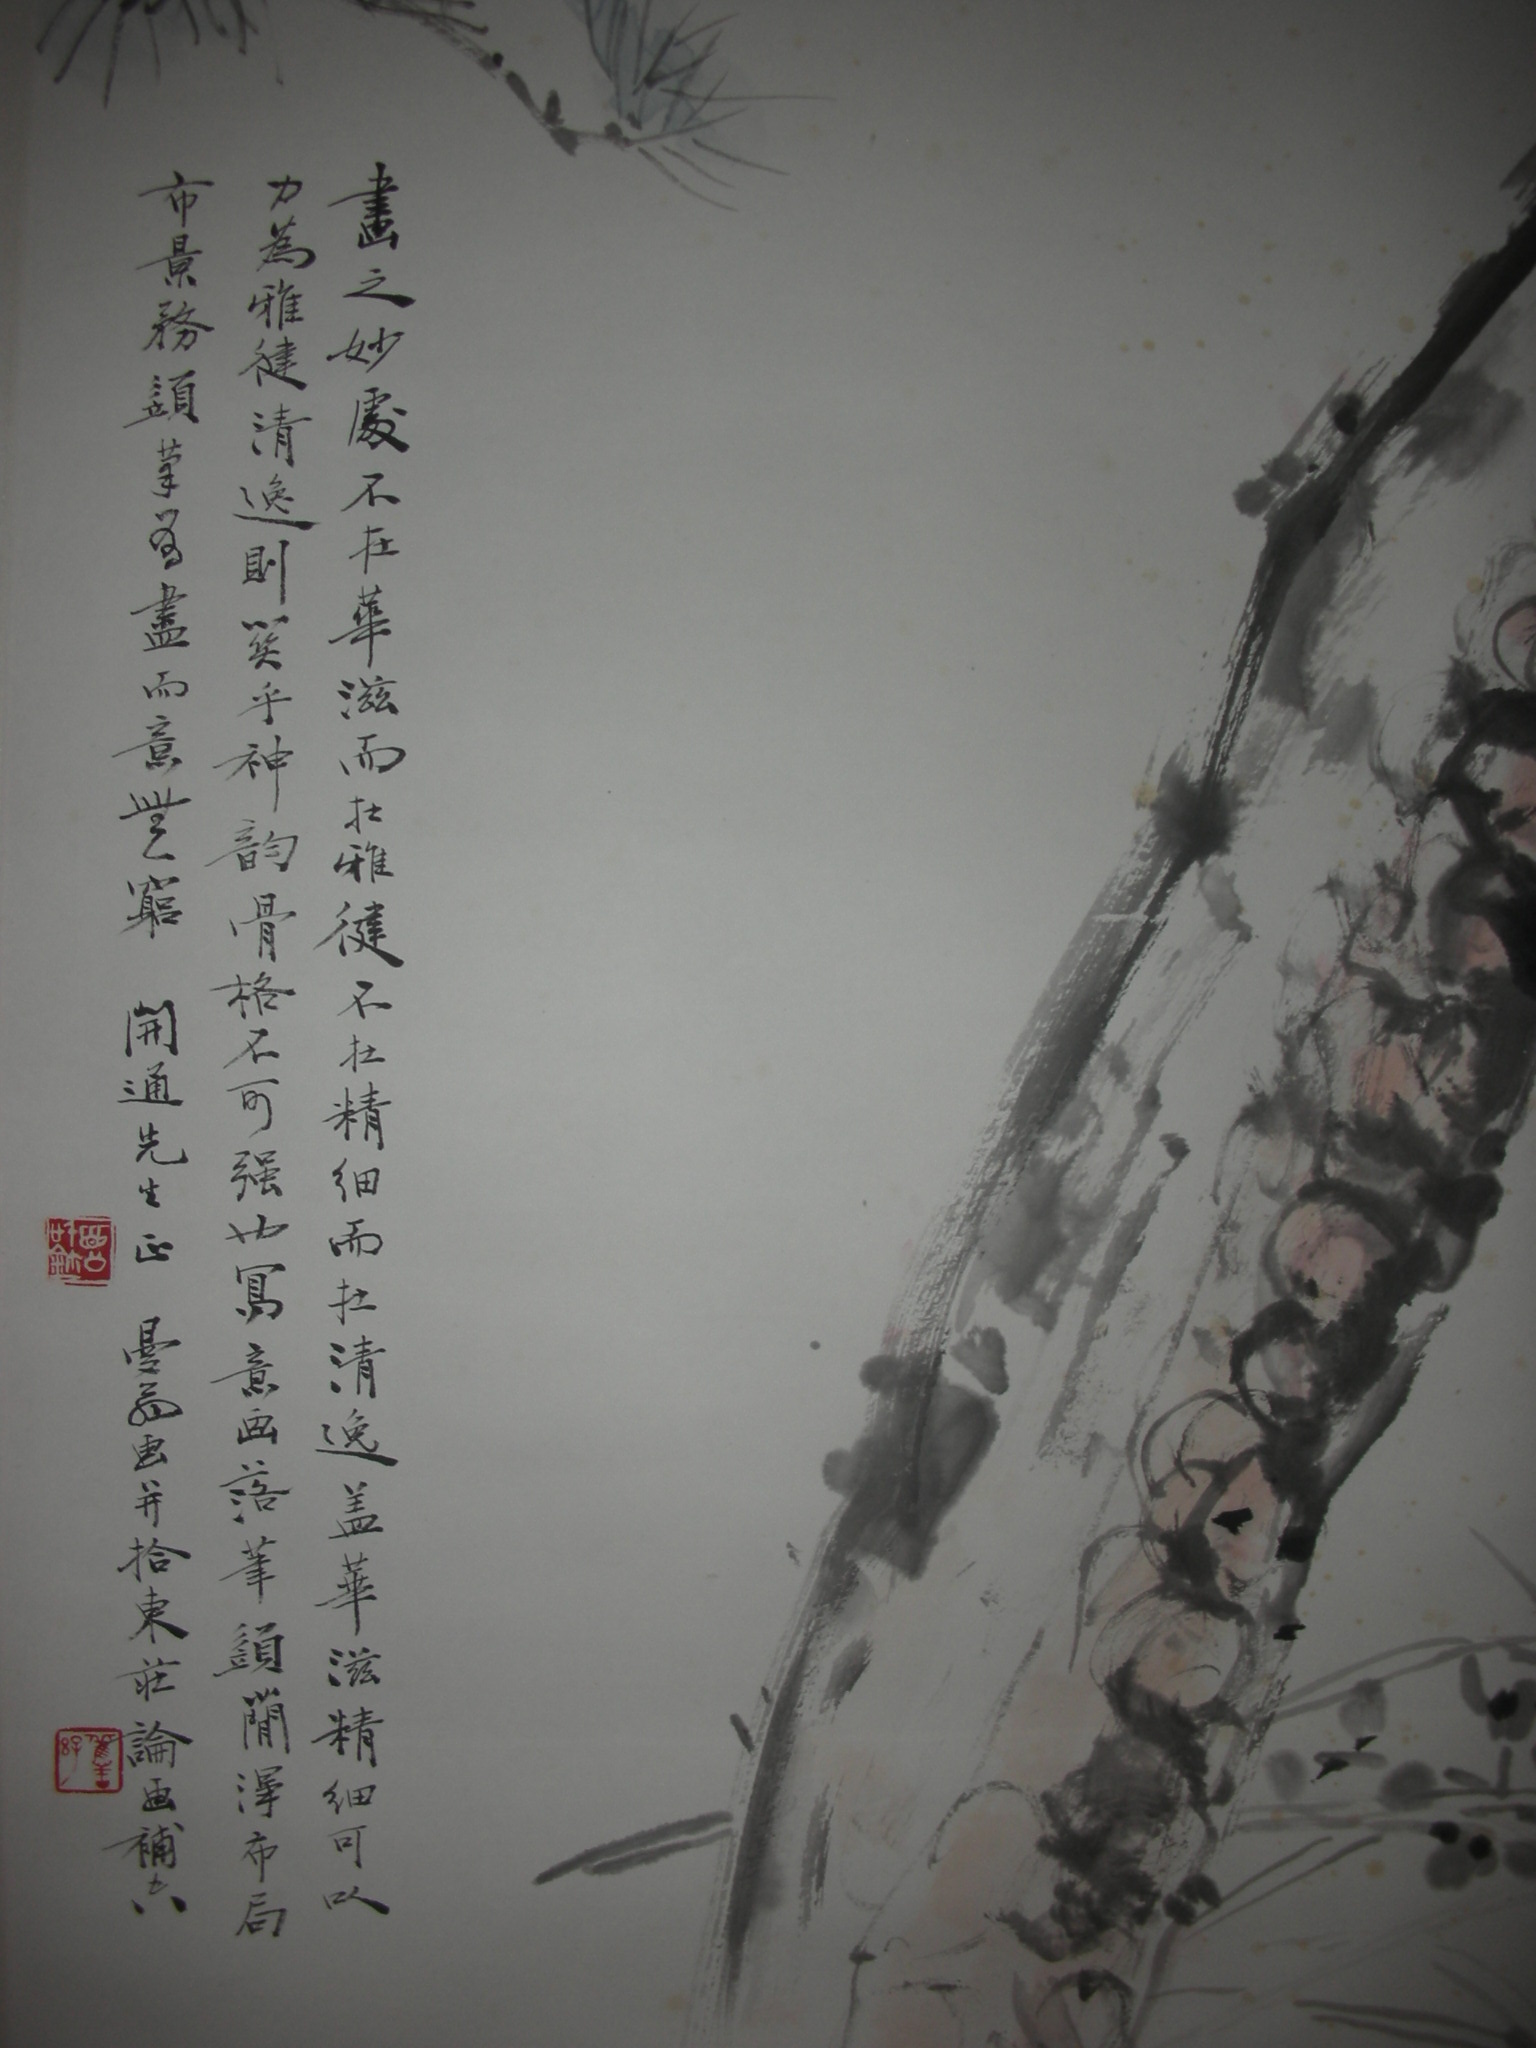 畫之妙處不在華滋而在雅健不在精細而在清逸盖華滋精細可以
力為雅健清逸則關乎神韵骨格不可强也寫意画落筆須簡淨布局
布景務須筆有盡而意無窮 開通先生正 曼翁画并拾東莊論画補空